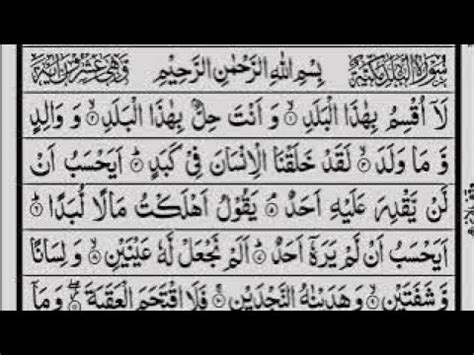 سورة البلد مكية بسم الله الرحمن الرحيم وهي عشرون اية
لَاۤ اُقْسِمُ بِهٰذَا الْبَلَدِ ۙ﴿۱﴾ وَ اَنْتَ حِلٌّۢ بِهٰذَا الْبَلَدِ ۙ﴿۲﴾ وَ وَالِدٍ
وَّ مَا وَلَدَ ۙ﴿۳﴾ لَقَدْ خَلَقْنَا الْاِنْسَانَ فِیْ كَبَدٍ ؕ﴿۴﴾ اَیَحْسَبُ اَنْ
لَّنْ یَّقْدِرَ عَلَیْهِ اَحَدٌ ۘ﴿۵﴾ یَقُوْلُ اَهْلَكْتُ مَالًا لُّبَدًا ؕ﴿۶﴾
اَیَحْسَبُ اَنْ لَّمْ یَرَهٗۤ اَحَدٌ ؕ﴿۷﴾ اَلَمْ نَجْعَلْ لَّهٗ عَیْنَیْنِ ۙ﴿۸﴾ وَ لِسَانًا
وَّ شَفَتَیْنِ ۙ﴿۹﴾ وَ هَدَیْنٰهُ النَّجْدَیْنِ ۚ﴿۱۰﴾ فَلَا اقْتَحَمَ الْعَقَبَةَ ۖ﴿۱۱﴾ وَ مَاۤ